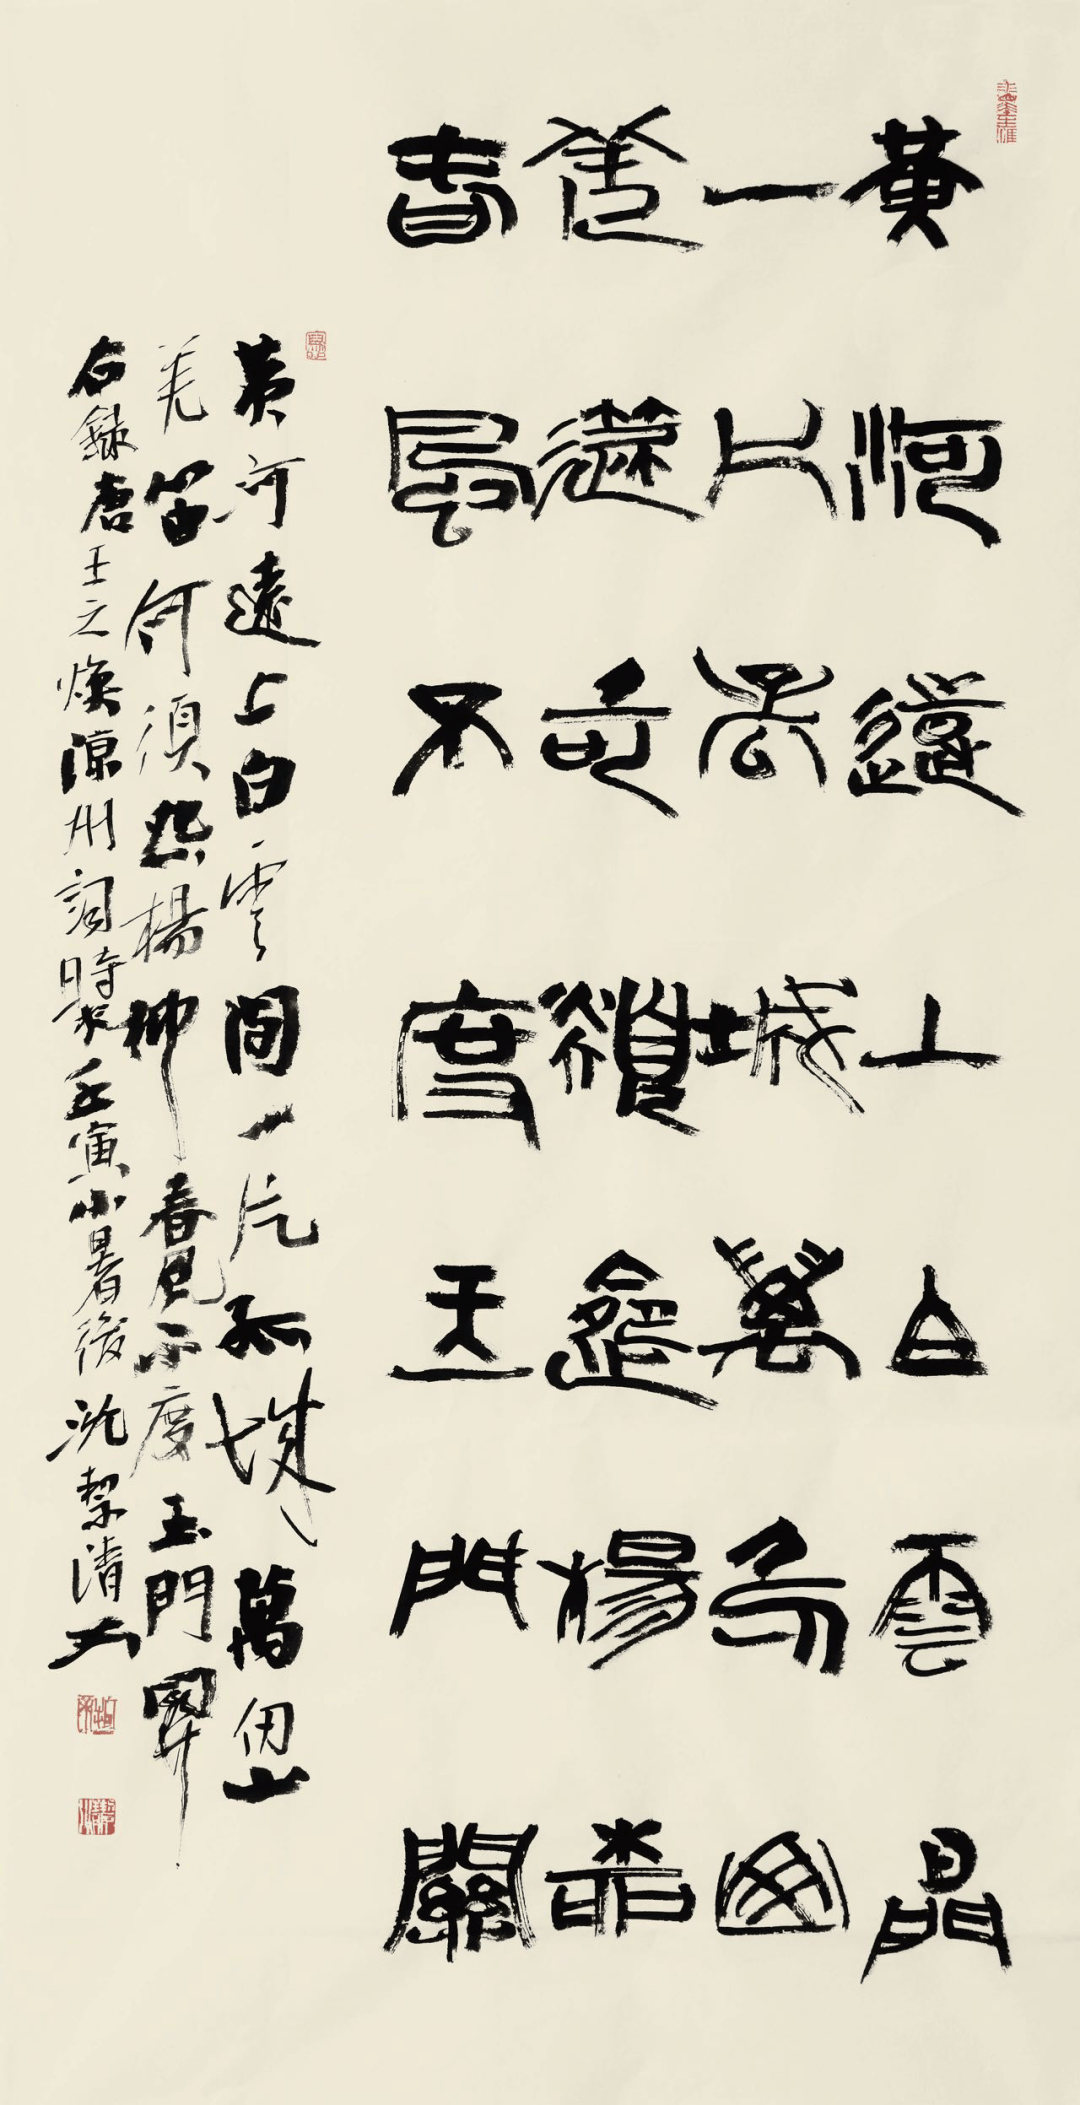 黃河遠上白雲間
一片孤城萬仞山
羌笛何須怨楊柳
春風不度玉門關
黃河遠上白雲間一片孤城萬仞山
羌笛何須怨楊柳春風不度玉門關
右錄唐王之煥涼州詞時壬寅小暑後沈絜清